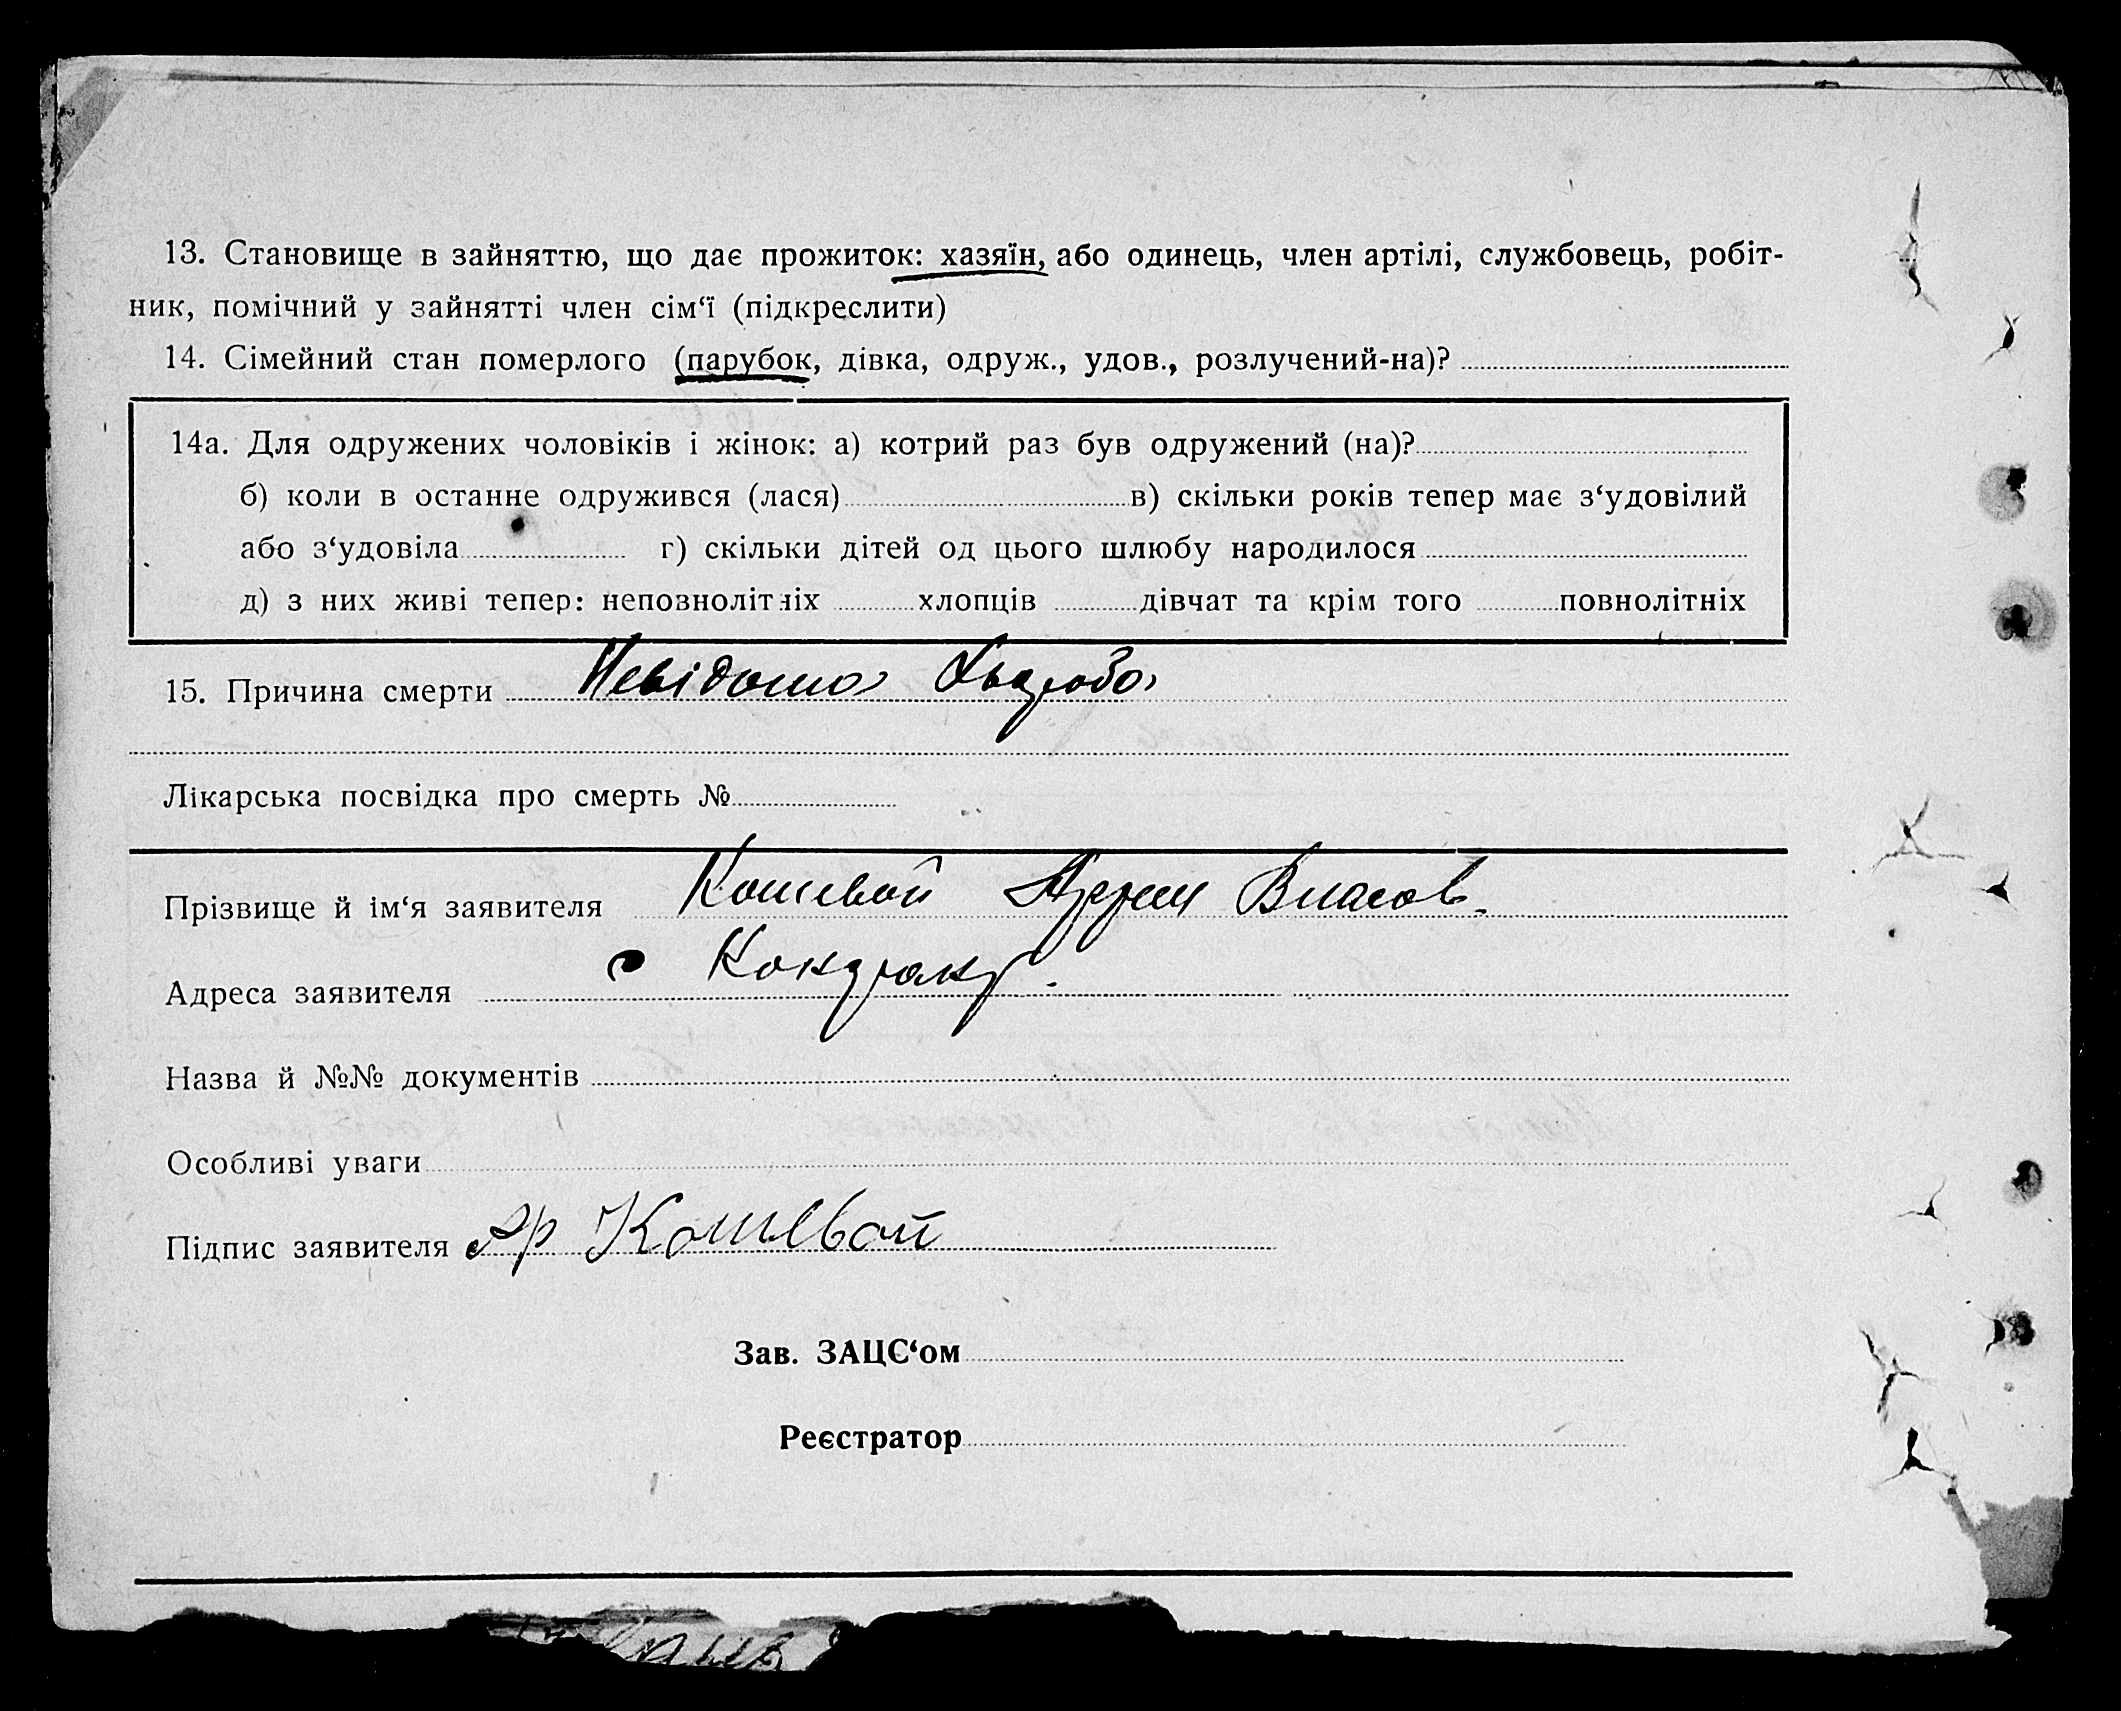 13. Становище в зайняттю, що дає прожиток: хазяїн, або одинець, член артілі, службовець, робіт-
ник, помічний у зайнятті член сім‘ї (підкреслити)
14. Сімейний стан померлого (парубок, дівка, одруж., удов., розлучений-на)?
14а. Для одружених чоловіків і жінок: а) котрий раз був одружений (на)?
б) коли в останнє одружився (лася) в) скільки років тепер має з‘удовілий
або з‘удовіла г) скільки дітей од цього шлюбу народилося
д) з них живі тепер: неповнолітніх хлопців дівчат та крім того повнолітніх
15. Причина смерти Невідома
Лікарська посвідка про смерть №
Прізвище й ім‘я заявителя Кошевой Власов.
Адреса заявителя с
Назва й №№ документів
Особливі уваги
Підпис заявителя Кошевой
Зав. ЗАЦС‘ом
Реєстратор